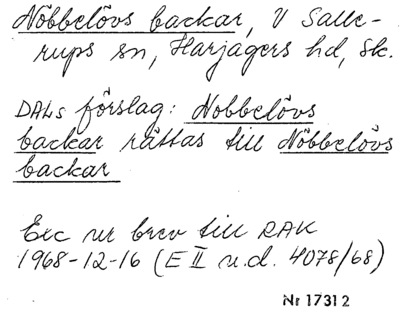 Nöbbelövs backar, V Salle-
rups sn, Harjagers hd, Sk.
DALs förslag: Nobbelövs
backar rättas till Nöbbelövs
backar
Exc ur brev till RAK
1968-12-16 (E II u.d. 4078/68)
Nr 17312